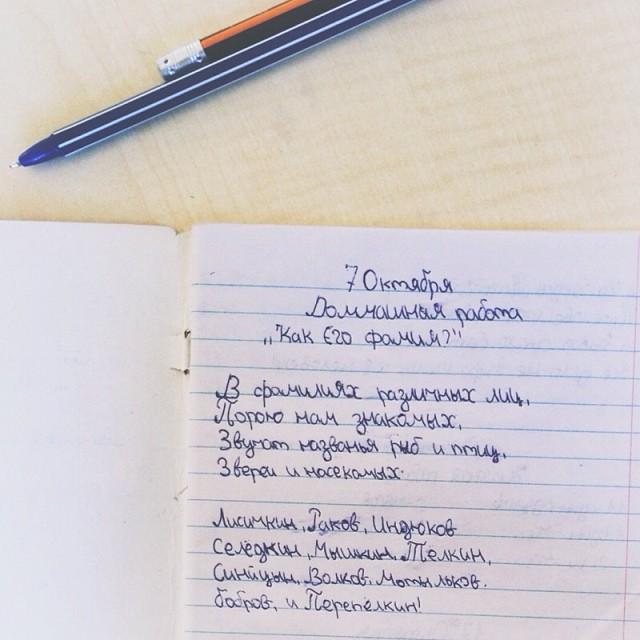 7 Октября
Домашная работа
„Как Его фамия?"
В фамилиях различных лиц,
Порою нам знакомых,
Звучат названья рыб и птиц,
Зверей и насекомых.
Лисичкин, Раков, Индюков
Селёдкин, Мышкин, Тёлкин,
Синицын, Волков, Мотыльков.
бобров, и Перепёлкин!